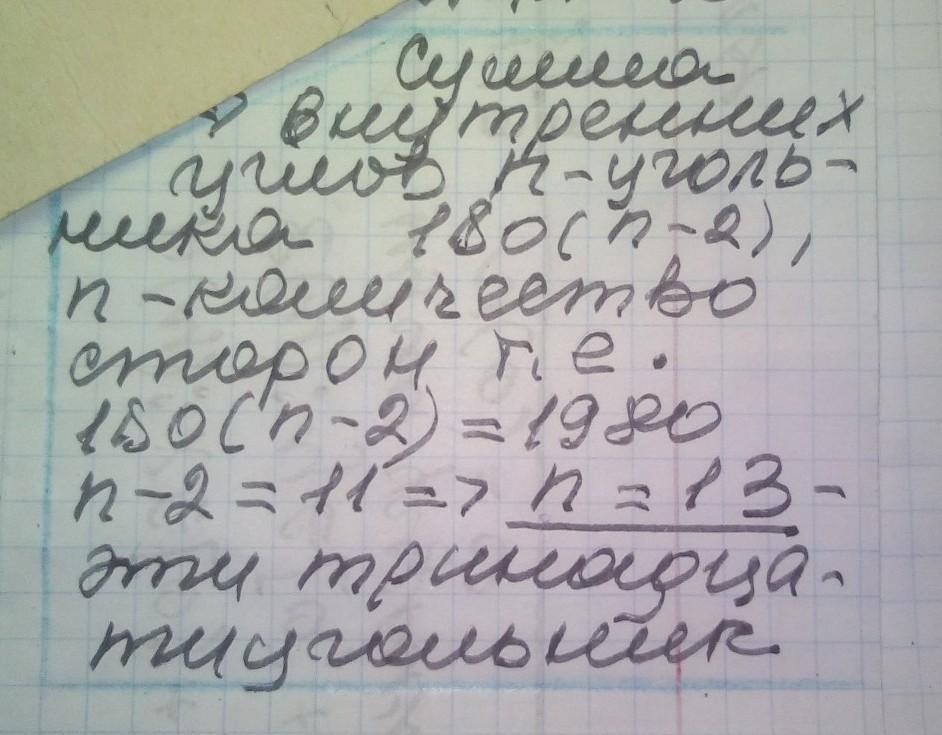 Сумма
внутренних
углов n-уголь-
ника 180(n-2),
n-количество
сторон т.е.
180(n-2)=1980
n-2=11=> n=13-
эти тринадца-
тиугольник